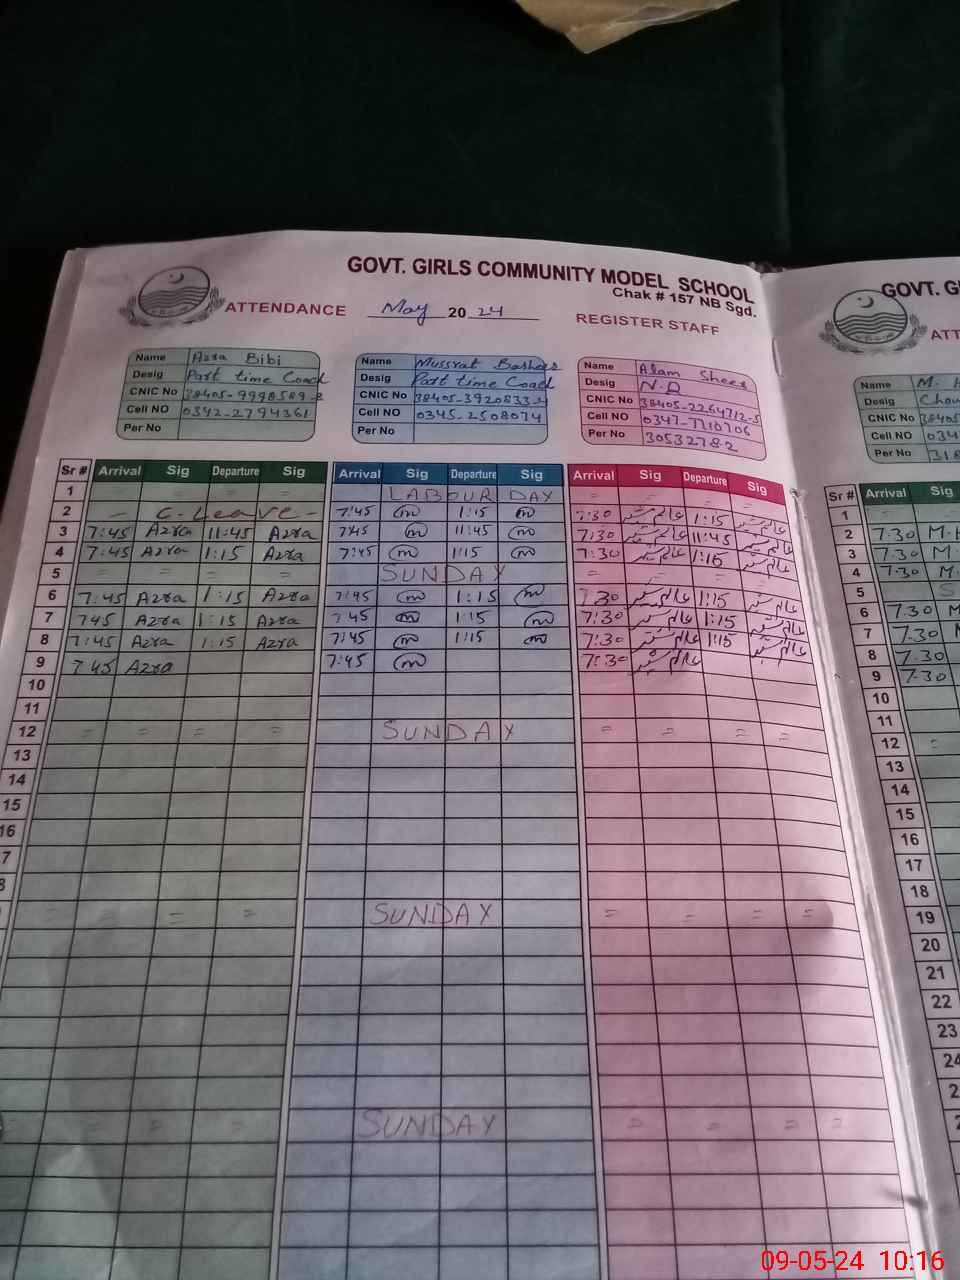 GOVT. GIRLS COMMUNITY MODEL SCHOOL
Chak # 157 NB Sgd.
ATTENDANCE May 20 24 REGISTER STAFF
Name Azra Bibi
Desig Part time Coach
CNIC No
Cell NO 0342-2794361
Per No
Name Mussrat
Desig Part time Coach
CNIC No
Cell NO 0345-2508074
Per No
Name Alam Sheer
Desig N.Q
CNIC No
Cell NO
Per No
Sr # Arrival Sig Departure Sig Arrival Sig Departure Sig Arrival Sig Departure Sig
1 = = = LABOUR DAY = = = =
2 - C. Leave - 7:45 1:15 7:30 عالم شیر 1:15 عالم شیر
3 7:45 Azra 11:45 Azra 7:45 11:45 7:30 عالم شیر 11:45 عالم شیر
4 7:45 Azra 1:15 Azra 7:45 1:15 7:30 عالم شیر 1:15 عالم شیر
5 = = = = SUNDAY = = = =
6 7:45 Azra 1:15 Azra 7:45 1:15 7:30 عالم شیر 1:15 عالم شیر
7 7:45 Azra 1:15 Azra 7:45 1:15 7:30 عالم شیر 1:15 عالم شیر
8 7:45 Azra 1:15 Azra 7:45 1:15 7:30 عالم شیر 1:15 عالم شیر
9 7:45 Azra 7:45 7:30 عالم شیر
10
11
12 = = = = SUNDAY = = = =
13
14
15
16
7
8
= = = SUNDAY = = = =
= = = SUNDAY = = = =
GOVT. G
ATT
Name M.
Desig
CNIC No
Cell NO
Per No
Sr # Arrival Sig
1
2 7:30 M.
3 7:30 M.
4 7:30 M.
5 S
6 7:30 M
7 7:30 M
8 7:30
9 7:30
10
11
12 =
13
14
15
16
17
18
19
20
21
22
23
24
2
2
09-05-24 10:16